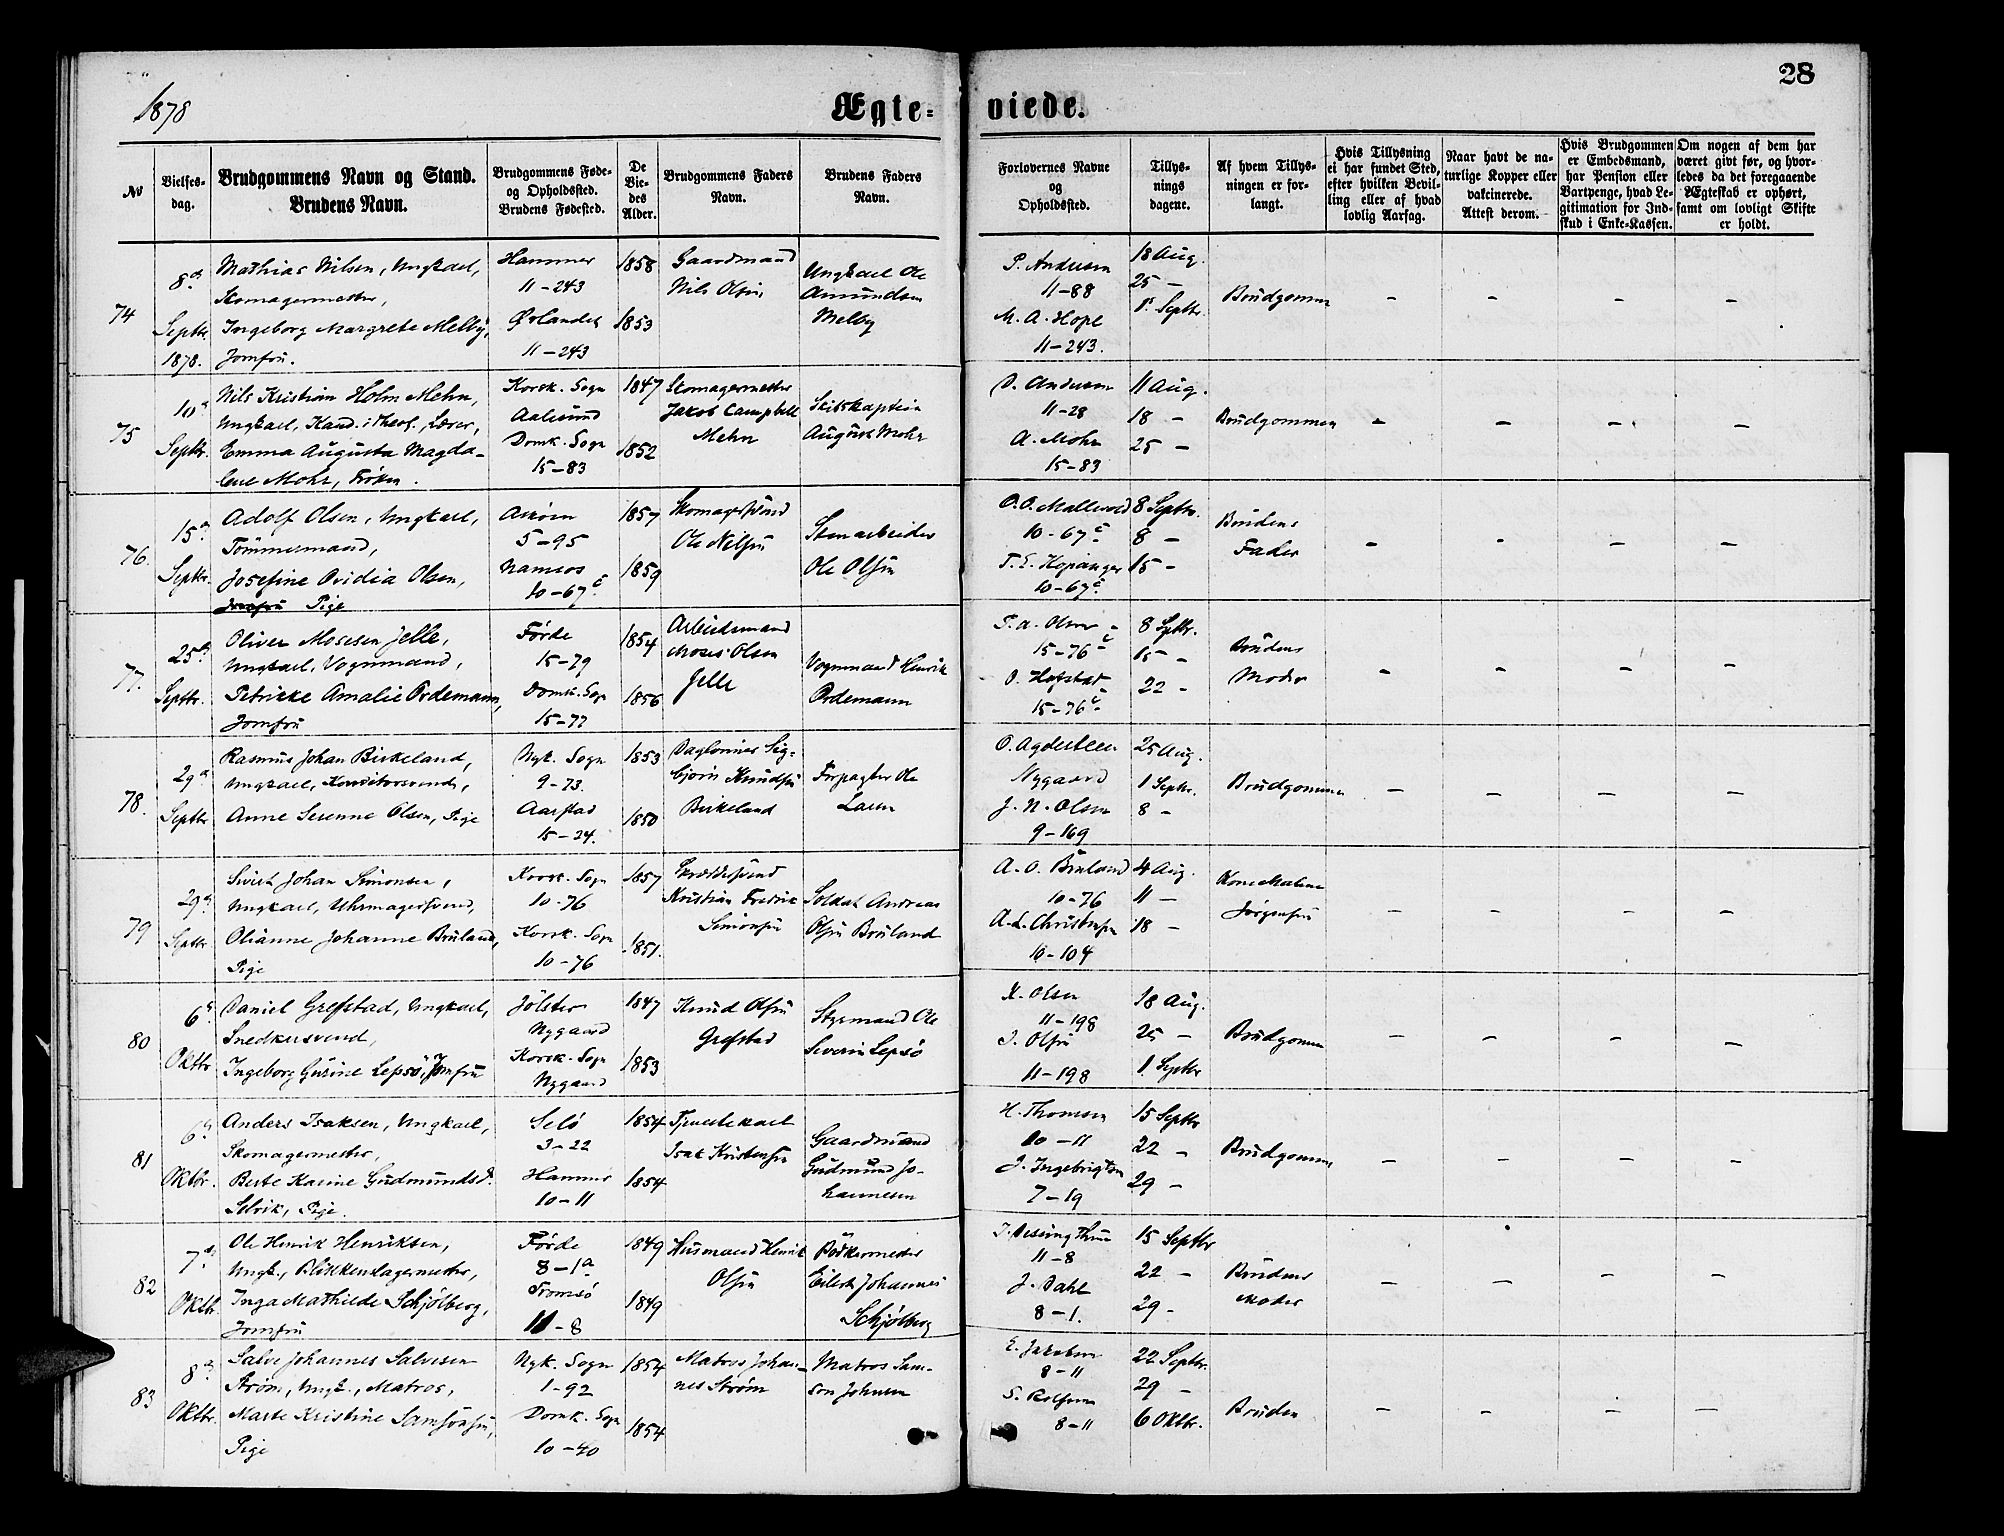 1878
28
Ægte=
viede.
No
Vielses-
dag.
Brudgommens Navn og Stand.
Brudens Navn.
Brudgommens Føde-
og Opholdssted.
Brudens Fødested.
De
Vie-
des
Alder.
Brudgommens Faders
Navn.
Brudens Faders
Navn.
Forlovernes Navne
og
Opholdssted.
Tillys-
nings
dagene.
Af hvem Tillys-
ningen er for-
langt.
Hvis Tillysning
ei har fundet Sted,
efter hvilken Bevil-
ling eller af hvad
lovlig Aarsag.
Naar havt de na-
turlige Kopper eller
vakcinerede.
Attest derom.
Hvis Brudgommen
er Embedsmand,
har Pension eller
Vartpenge, hvad Le-
gitimation for Ind-
skud i Enke-Kassen.
Om nogen af dem har
været givt før, og hvor-
ledes da det foregaaende
Ægteskab er ophørt,
samt om lovligt Skifte
er holdt.
74
8de
Septbr.
1878.
Mathias Nilsen, Ungkael,
Skomagermester,
Ingeborg Margrete Melby,
Jomfru.
Hammer
11-243
Ørlandet
11-243
1858
1853
Gaardmand
Nils Olsen,
Ungkael Ole
Amundsen
Melby
P. Andersen
11-88
M. A. Hope
11-243.
18 Aug.
25 -
1. Septbr.
Brudgommen
75
10de
Septbr.
Nils Kristian Holm Mehn,
Ungkael, Kand. i Theol., Lærer,
Emma Augusta Magda-
lene Mohr, Frøken.
Korsk. Sogn
Aalesund
Domk. Sogn
15-83
1847
1852
Skomagermester
Jakob Campbell
Mehn
Skibskaptein
August Mohr
D. Andersen
11-28
A. Mohr
15-83
11 Aug.
18 -
25 -
Brudgommen
76.
15de
Septbr.
Adolf Olsen, Ungkael,
Tømmermand,
Josefine Ovidia Olsen,
Jomfru Pige
5-95
Namsos
10-67c
1857
1859
Skomagersvend
Ole Nilsen
Stenarbeider
Ole Olsen
10-67c
T. E. Kopanger
10-67c
8 Septbr.
8 -
15 -
Brudens
Fader
77.
25de
Septbr.
Oliver Mosesen Jelle,
Ungkael, Vognmand,
Petrikke Amalie Ordemann,
Jomfru
Førde
15-79
Domk. Sogn
15-77
1854
1856
Arbeidsmand
Moses Olsen
Jelle
Vognmand Henrik
Ordemann
P. A. Olsen
15-76c
O. Hopstad
15-76c
8 Septbr.
15 -
22 -
Brudens
Moder
78.
29de
Septbr
Rasmus Johan Birkeland,
Ungkael, Konditorsvend,
Anne Serenne Olsen, Pige
Nyk. Sogn
9-73.
Aarstad
15-24.
1853
1850
Daglønner Sig-
bjørn Knudsen
Birkeland
Forpagter Ole
Larsen
O. Agdesteen
Nygaard
J. N. Olsen
9-169
25 Aug.
1 Septbr.
8 -
Brudgommen
79
29de
Septbr
Sivert Johan Simonsen,
Ungkael, Uhrmagersvend,
Olianne Johanne Bruland,
Pige
Korsk. Sogn
10-76
Korsk. Sogn
10-76
1857
1851.
Skræddersvend
Kristian Fredrik
Simonsen
Soldat Andreas
Olsen Bruland
A. O. Bruland
10-76
A. L. Christensen
10-104
4 Aug.
11 -
18 -
Kone Malene
Jørgensen
80
6te
Oktbr
Daniel Grefstad, Ungkael,
Snedkersvend,
Ingeborg Gurine Lepsø, Jomfru
Jølster
Nygaard
Korsk. Sogn
Nygaard
1847
1853
Knud Olsen
Grefstad
Styrmand Ole
Severin Lepsø
K. Olsen
11-198
J. Olsen
11-198
18 Aug.
25 -
1. Septbr
Brudgommen
81
6te
Oktbr.
Anders Isaksen, Ungkael,
Skomagermester,
Berte Karine Gudmundsd.
Selvik, Pige.
Selø
3-22
Hammer
10-11
1854
1854
Tjenestekael
Isak Kristensen
Gaardmand
Gudmund Jo-
hannesen
H. Thomsen
10-11
J. Ingebrigtsen
7-19
15 Septbr
22 -
29 -
Brudgommen
82
7de
Oktbr.
Ole Henrik Henriksen,
Ungk., Blikkenslagermester,
Inga Mathilde Schjølberg,
Jomfru
Førde
8-1a
Tromsø
11-8
1849
1849
Husmand Henrik
Olsen
Bødkermester
Eilert Johannes
Schjølberg
11-8
J. Dahl
8-1.
15 Septbr
22 -
29 -
Brudens
Moder
83
8de
Oktbr.
Salve Johannes Salvesen
Strøm, Ungk., Matros,
Marte Kristine Samsonsen,
Pige
Nyk. Sogn
1-92
Domk. Sogn
10-40
1854
1854
Matros Johan-
nes Strøm
Matros Sam-
son Johnsen
E. Jakobsen
8-11
S. Rolfsen
8-11
22 Septbr.
29 -
6 Oktbr.
Bruden